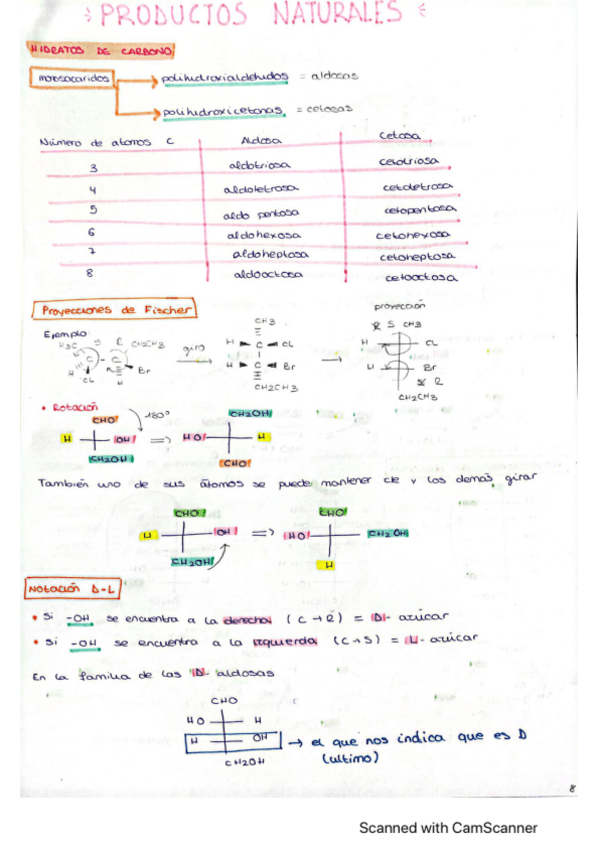 PRODUCTOS NATURALES
HIDRATOS DE CARBONO
monosacaridos polihidroxialdehidos = aldosas
polihidroxicetonas = cetosas
Número de atomos C Aldosa Cetosa
3 aldotriosa cetotriosa
4 aldotetrosa cetotetrosa
5 aldo pentosa cetopentosa
6 aldohexosa cetohexosa
7 aldoheptosa cetoheptosa
8 aldooctosa cetooctosa
Proyecciones de Fischer
proyección
Ejemplo:
CH3
R S CH3
H3C S R CH2CH3
giro
H C Cl
H CL
C C
H C Br
H Br
H CL H Br
R
CH2CH3
CH2CH3
• Rotación 180°
CHO CH2OH
H OH => HO H
CH2OH CHO
También uno de sus átomos se puede mantener cte y los demas girar
CHO CHO
H OH => HO CH2OH
CH2OH H
NOTACIÓN D-L
• Si -OH se encuentra a la derecha (C→R) = D- azúcar
• Si -OH se encuentra a la izquierda (C→S) = L- azúcar
En la familia de las D- aldosas
CHO
HO H
H OH → el que nos indica que es D
CH2OH (ultimo)
8
Scanned with CamScanner